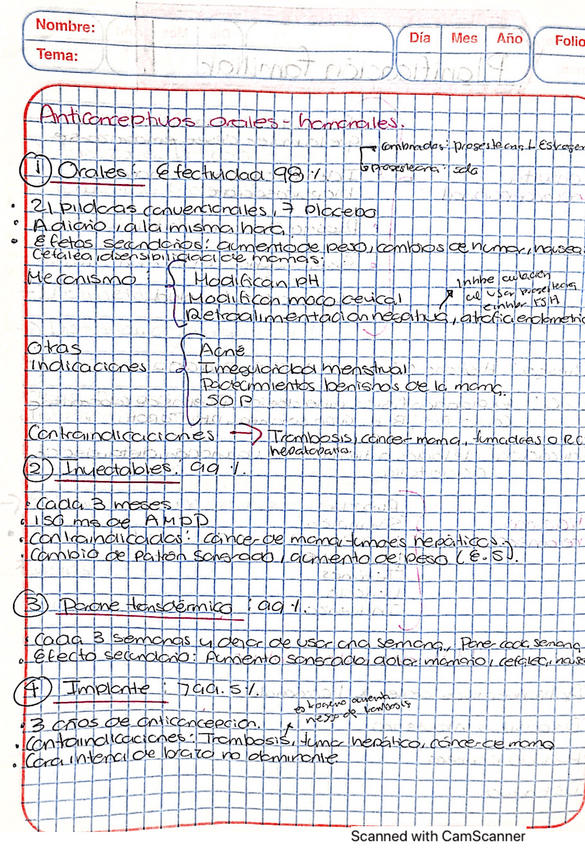 Nombre:
Día Mes Año Folio
Tema:
Anticonceptivos orales - hormonales.
combinadas: progestecna + Estrogen
progestecna: sola
① Orales: Efectividad 98 %
• 21 pildoras convencionales, 7 placebo
• A diario, a la misma hora
• Efetos secundarios: aumento de peso, cambios de humor, nausea
Cefalea, sensibilidad de mamas.
Mecanismo { Modifican PH
Modifican moco cevical
Retroalimentación negativa, atrofia endometric
Inhibe
al usar progestecna
e inhibir FSH
Otras indicaciones { Acné
Irregularidad menstrual
Padecimientos benignos de la mama.
SOP
Contraindicaciones → Trombosis, cancer mama, fumadores
hepatopatia
② Inyectables. 99 %.
• Cada 3 meses
• 150 mg de AMPD
• Contraindicados: cáncer de mama, tumores hepáticos.
• Cambio de patrón sangrado, aumento de peso (E.S).
③ Parche transdérmico: 99 %.
• Cada 3 semanas y dejar de usar una semana, Parche cada semana
• Efecto secundario: Aumento sangrado, dolor mamario, cefalea, nause
④ Implante: 799.5%.
estrogeno aumenta
riesgo de trombosis
• 3 años de anticoncepcion.
• Contraindicaciones: Trombosis, tumor hepático, cáncer de mama
• Cara interna de brazo no dominante
Scanned with CamScanner